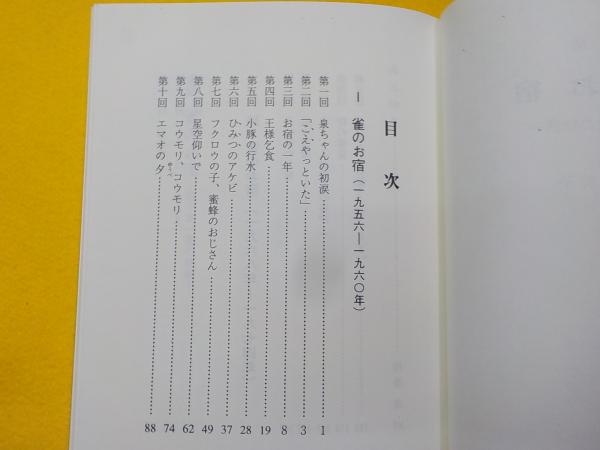 目次
I 雀のお宿(一九五六―一九六〇年)
第一回 泉ちゃんの初涙 1
第二回 「ごえやっといた」 3
第三回 お宿の一年 8
第四回 王様乞食 19
第五回 小豚の行水 28
第六回 ひみつのアケビ 37
第七回 フクロウの子、蜜蜂のおじさん 49
第八回 星空仰いで 62
第九回 コウモリ、コウモリ 74
第十回 エマオの夕 ゆうべ 88